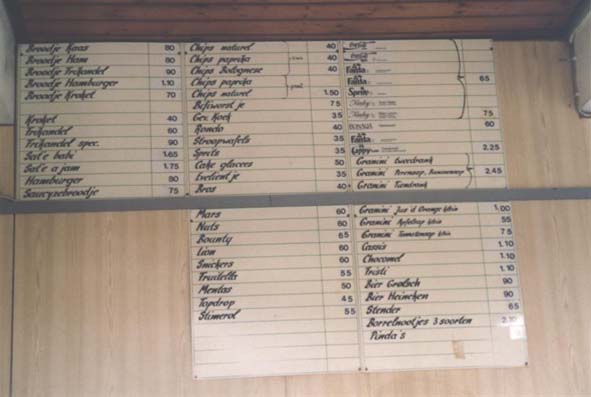 Broodje Kaas 80
Broodje Ham 80
Broodje Frikandel 90
Broodje Hamburger 1.10
Broodje Kroket 70
Kroket 40
Frikandel 60
Frikandel spec. 90
Saté babi 1.65
Saté ajam 1.75
Hamburger 80
Saucyzebroodje 75
Chips naturel 40
Chips paprika 40
Chips Bolognese 40
Chips paprika
Chips naturel 1.50
Bifiworstje 75
Gev. Koek 35
Rondo 40
Stroopwafels 35
Sprits 35
Cake glacees 50
Evelientje 35
Bros 40
Fanta
Fanta 65
Sprite
75
60
Fanta
2,25
Granini tweedrank
Granini 2,45
Granini
Mars 60
Nuts 60
Bounty 65
Lion 60
Snickers 60
Fruitella 55
Mentos 50
Topdrop 45
Stimerol 55
Granini Jus d'Orange klein 1.00
Granini Appelsap klein 55
Granini Tomatensap klein 75
Cassis 1.10
Chocomel 1.10
Fristi 1.10
Bier Grolsch 90
Bier Heineken 90
Stender 65
Borrelnootjes 3 soorten 2.10
Pinda's